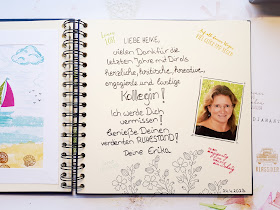 LIEBE HEIKE,
vielen Dank für die
letzten Jahre mit Dir als
herzliche, kritische, kreative,
engagierte und lustige
Kollegin!
Ich werde Dich
vermissen!
Genieße Deinen
verdienten RUHESTAND!
Deine Erika